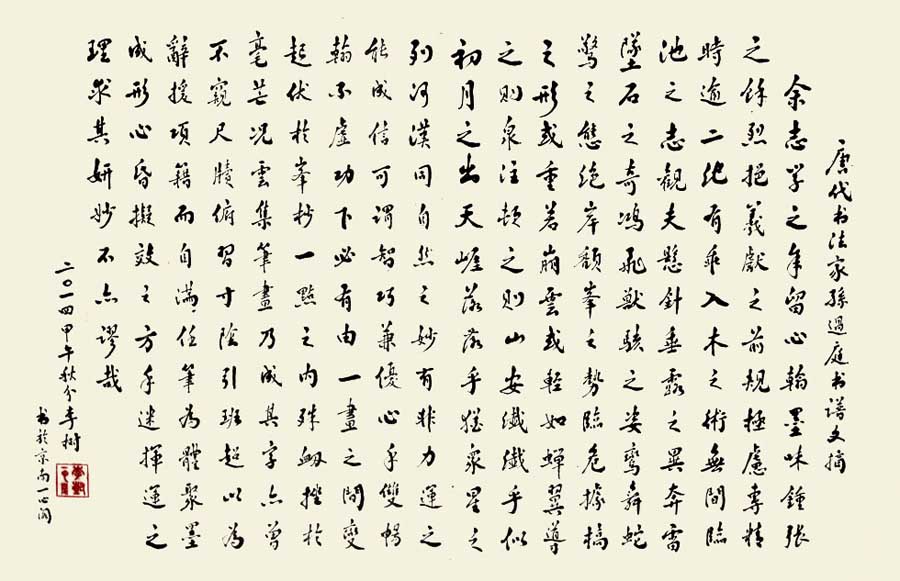 唐代书法家孫過庭书谱文摘
余志学之年留心翰墨味鍾張
之餘烈挹羲獻之前規極慮專精
時逾二纪有乖入木之術無間臨
池之志觀夫懸針垂露之異奔雷
墜石之奇鴻飛獸駭之姿鸾舞蛇
驚之態絶岸頹峯之勢臨危據槁
之形或重若崩雲或輕如蝉翼導
之则泉注頓之则山安纖纖乎似
初月之出天崖落落乎猶衆星之
列河漢同自然之妙有非力運之
能成信可謂智巧兼優心手雙暢
翰不虛功下必有由一畫之間變
起伏於峯杪一點之内殊衄挫於
毫芒况雲集筆畫乃成其字亦曾
不窺尺牘俯習寸陰引班超以為
辭援項籍而自滿任筆為體聚墨
成形心昏擬效之方手迷揮運之
理求其妍妙不亦謬哉
二〇一四甲午秋分李樹
书於京南一心阁